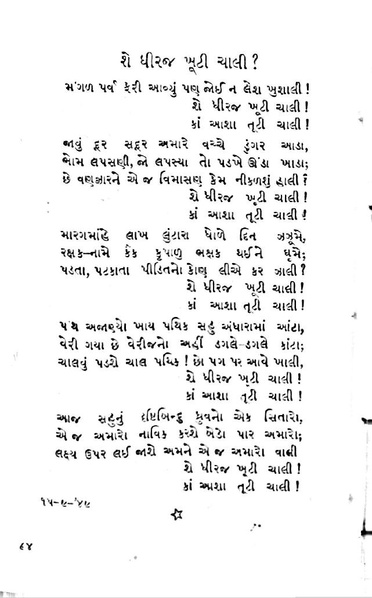 શે ધીરજ ખૂટી ચાલી ?
મંગળ પર્વ ફરી આવ્યું પણ જોઈ ન લેશ ખુશાલી !
શે ધીરજ ખૂટી ચાલી !
કાં આશા તૂટી ચાલી !
જાવું દૂર સદૂર અમારે વચ્ચે ડુંગર આડા,
ભોમ લપસણી, જો લપસ્યા તો પડખે ઊંડા ખાડા;
છે વણઝારને એ જ વિમાસણ કેમ નીકળશું હાલી ?
શે ધીરજ ખૂટી ચાલી !
કાં આશા તૂટી ચાલી !
મારગમાંહે લાખ લુંટારા ધોળે દિન ઝઝૂમે,
રક્ષક-નામે કૈંક કૃપાળુ ભક્ષક થઈને ઘૂમે;
પડતા, પટકાતા પીડિતનો કોણ લીએ કર ઝાલી ?
શે ધીરજ ખૂટી ચાલી !
કાં આશા તૂટી ચાલી !
પંથ અજાણ્યો ખાય પથિક સહુ અંધારામાં આંટા,
વેરી ગયા છે વેરીજનો અહીં ડગલે-ડગલે કાંટા;
ચાલવું પડશે ચાલ પથિક ! છો પગ પર આવે ખાલી,
શે ધીરજ ખૂટી ચાલી !
કાં આશા તૂટી ચાલી !
આજ સહુનું દૃષ્ટિબિન્દુ ધ્રુવનો એક સિતારો,
એ જ અમારો નાવિક કરશે બેડો પાર અમારો;
લક્ષ્ય ઉપર લઈ જાશે અમને એ જ અમારો વાલી
શે ધીરજ ખૂટી ચાલી !
કાં આશા તૂટી ચાલી !
૧૫-૯-'૪૯
૯૪